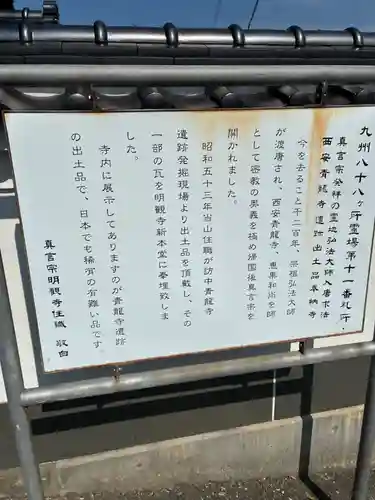 九州八十八ヶ所霊場第十一番札所
真言宗発祥の霊地弘法大師入唐求法
西安青龍寺遺跡出土品奉納寺
今を去ること千二百年、宗祖弘法大師
が渡唐され、西安青龍寺、恵果和尚を師
として密教の奥義を極め帰国後真言宗を
開かれました。
昭和五十三年当山住職が訪中青龍寺
遺跡発掘現場より出土品を頂戴し、その
一部の瓦を明観寺新本堂に奉埋致しま
した。
寺内に展示してありますのが青龍寺遺跡
の出土品で、日本でも稀有の有難い品です
真言宗明観寺住職 敬白